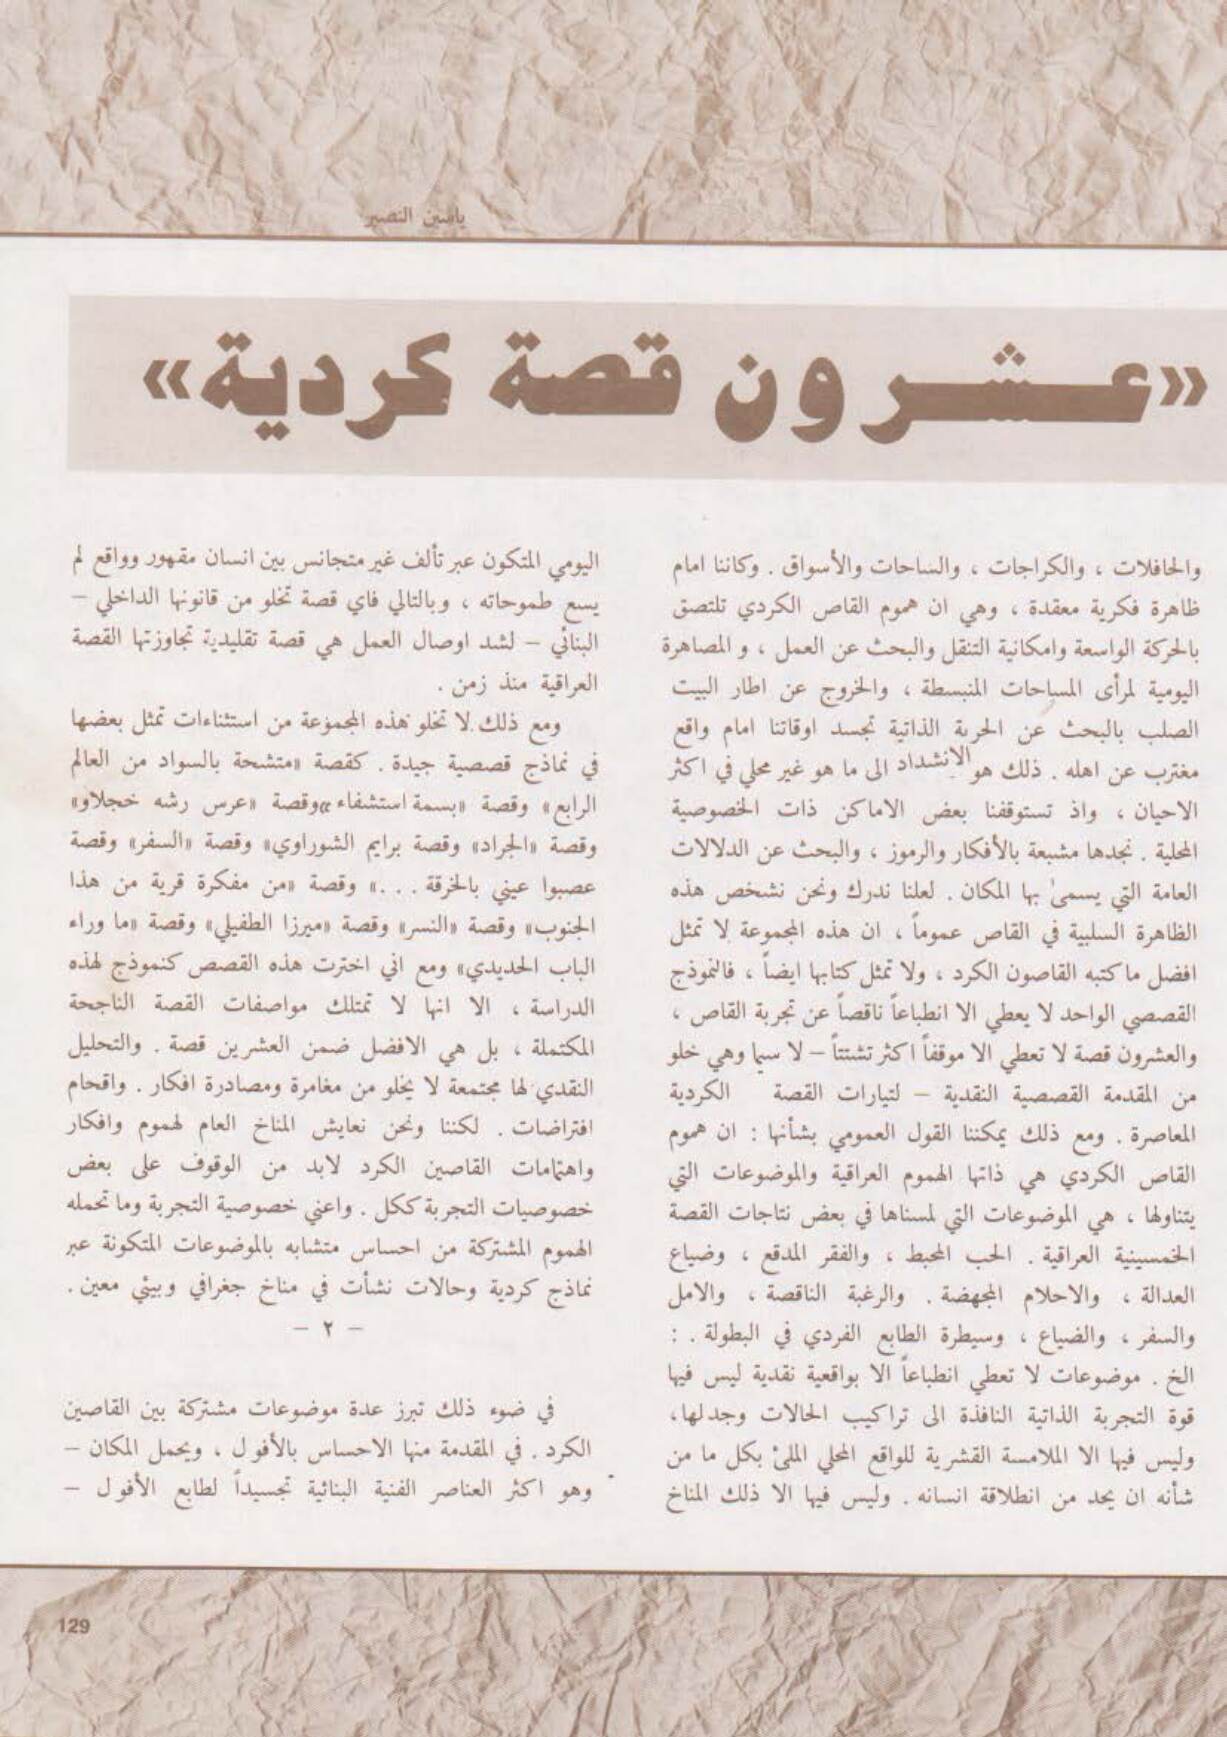 ياسين النصير
«عشرون قصة كردية»
والحافلات ، والكراجات ، والساحات والأسواق . وكاننا امام
ظاهرة فكرية معقدة ، وهي ان هموم القاص الكردي تلتصق
بالحركة الواسعة وامكانية التنقل والبحث عن العمل ، و المصاهرة
اليومية لمرأى المساحات المنبسطة ، والخروج عن اطار البيت
الصلب بالبحث عن الحرية الذاتية تجسد اوقاتنا امام واقع
مغترب عن اهله . ذلك هو الانشداد الى ما هو غير محلي في اكثر
الاحيان ، واذ تستوقفنا بعض الاماكن ذات الخصوصية
المحلية . نجدها مشبعة بالأفكار والرموز ، والبحث عن الدلالات
العامة التي يسمىٰ بها المكان . لعلنا ندرك ونحن نشخص هذه
الظاهرة السلبية في القاص عموماً ، ان هذه المجموعة لا تمثل
افضل ما كتبه القاصون الكرد ، ولا تمثل كتابها ايضاً ، فالنموذج
القصصي الواحد لا يعطي الا انطباعاً ناقصاً عن تجربة القاص ،
والعشرون قصة لا تعطي الا موقفاً اكثر تشتتاً – لا سيما وهي خلو
من المقدمة القصصية النقدية – لتيارات القصة الكردية
المعاصرة . ومع ذلك يمكننا القول العمومي بشأنها : ان هموم
القاص الكردي هي ذاتها الهموم العراقية والموضوعات التي
يتناولها ، هي الموضوعات التي لمسناها في بعض نتاجات القصة
الخمسينية العراقية . الحب المحبط ، والفقر المدقع ، وضياع
العدالة ، والاحلام المجهضة . والرغبة الناقصة ، والامل
والسفر ، والضياع ، وسيطرة الطابع الفردي في البطولة . :
الخ . موضوعات لا تعطي انطباعاً الا بواقعية نقدية ليس فيها
قوة التجربة الذاتية النافذة الى تراكيب الحالات وجدلها،
وليس فيها الا الملامسة القشرية للواقع المحلي الملئ بكل ما من
شأنه ان يحد من انطلاقة انسانه . وليس فيها الا ذلك المناخ
اليومي المتكون عبر تألف غير متجانس بين انسان مقهور وواقع لم
يسع طموحاته ، وبالتالي فاي قصة تخلو من قانونها الداخلي –
البنائي – لشد اوصال العمل هي قصة تقليدية تجاوزتها القصة
العراقية منذ زمن .
ومع ذلك لا تخلو هذه المجموعة من استثناءات تمثل بعضها
في نماذج قصصية جيدة . كقصة «متشحة بالسواد من العالم
الرابع» وقصة «بسمة استشفاء» وقصة «عرس رشه خجلاو»
وقصة «الجراد» وقصة برايم الشوراوي» وقصة «السفر» وقصة
عصبوا عيني بالخرقة . . .» وقصة «من مفكرة قرية من هذا
الجنوب» وقصة «النسر» وقصة «ميرزا الطفيلي» وقصة «ما وراء
الباب الحديدي» ومع اني اخترت هذه القصص كنموذج لهذه
الدراسة ، الا انها لا تمتلك مواصفات القصة الناجحة
المكتملة ، بل هي الافضل ضمن العشرين قصة . والتحليل
النقدي لها مجتمعة لا يخلو من مغامرة ومصادرة افكار . واقحام
افتراضات . لكننا ونحن نعايش المناخ العام لهموم وافكار
واهتمامات القاصين الكرد لابد من الوقوف على بعض
خصوصيات التجربة ككل . واعني خصوصية التجربة وما تحمله
الهموم المشتركة من احساس متشابه بالموضوعات المتكونة عبر
نماذج كردية وحالات نشأت في مناخ جغرافي وبيئي معين .
– ٢ –
في ضوء ذلك تبرز عدة موضوعات مشتركة بين القاصين
الكرد . في المقدمة منها الاحساس بالأفول ، ويحمل المكان –
وهو اكثر العناصر الفنية البنائية تجسيداً لطابع الأفول –
129